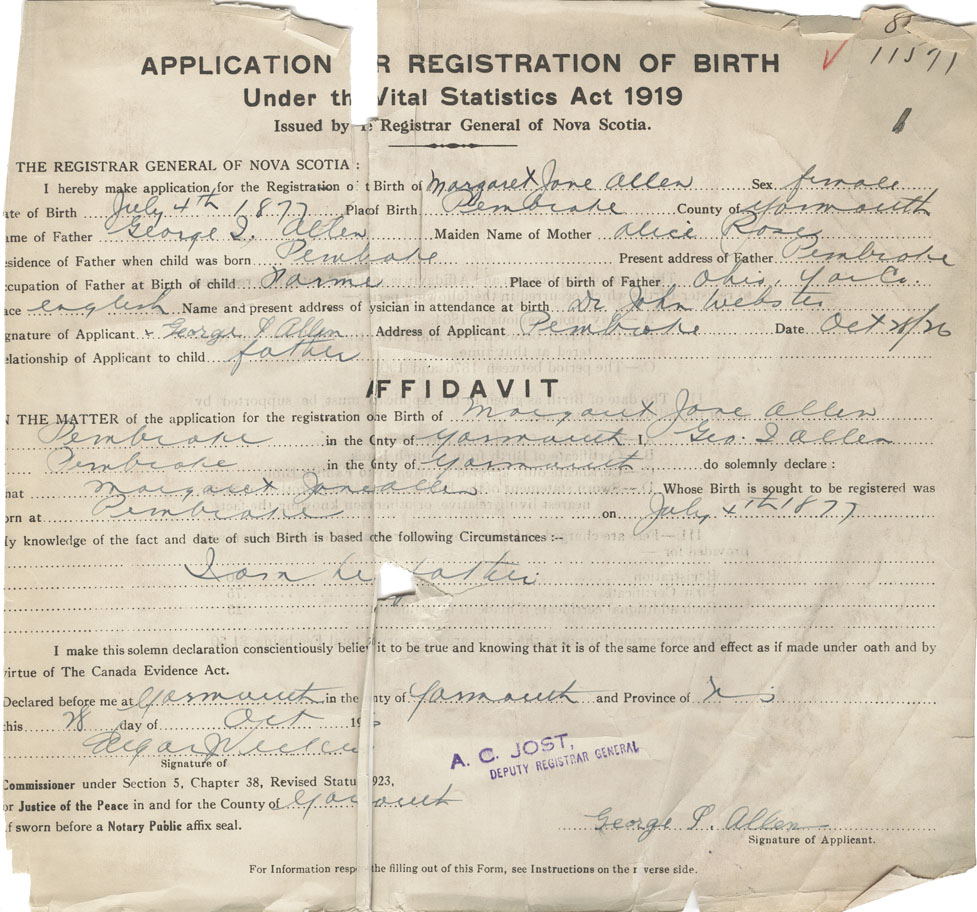 8
11571
APPLICATION R REGISTRATION OF BIRTH
Under th Vital Statistics Act 1919
Issued by e Registrar General of Nova Scotia.
THE REGISTRAR GENERAL OF NOVA SCOTIA:
I hereby make application for the Registration o t Birth of Margaret Jane Allen Sex female
ate of Birth July 4th 1877 Plac of Birth Pembroke County of Yarmouth
ame of Father George S. Allen Maiden Name of Mother Alice Rose
esidence of Father when child was born Pembroke Present address of Father Pembroke
ccupation of Father at Birth of child Farme Place of birth of Father Ohio, Yar Co.
ace english Name and present address of ysician in attendance at birth Dr John Webster
gnature of Applicant x George S Allen Address of Applicant Pembroke Date Oct 28/26
elationship of Applicant to child father
AFFIDAVIT
N THE MATTER of the application for the registration o ne Birth of Margaret Jane Allen
Pembroke in the C nty of Yarmouth I, Geo. S Allen
Pembroke in the C nty of Yarmouth do solemnly declare :
hat Margaret Jane Allen Whose Birth is sought to be registered was
orn at Pembroke on July 4th 1877
y knowledge of the fact and date of such Birth is based the following Circumstances :--
I am he father
I make this solemn declaration conscientiously belie it to be true and knowing that it is of the same force and effect as if made under oath and by
virtue of The Canada Evidence Act.
Declared before me at Yarmouth in the nty of Yarmouth and Province of N S
this 28 day of Oct 19
Signature of
Commissioner under Section 5, Chapter 38, Revised Statu 923,
or Justice of the Peace in and for the County of Yarmouth
f sworn before a Notary Public affix seal.
A. C. JOST,
DEPUTY REGISTRAR GENERAL
George S. Allen
Signature of Applicant.
For Information resp the filling out of this Form, see Instructions on the reverse side.